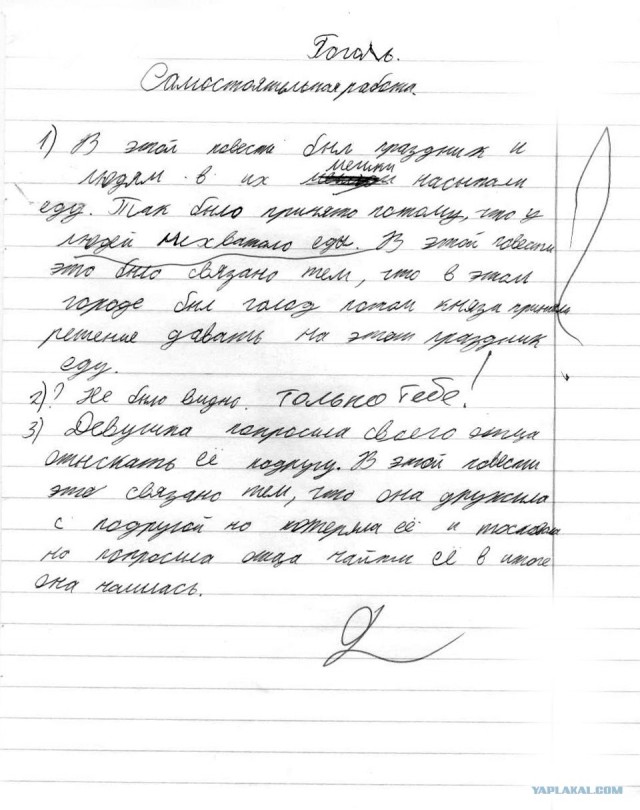 Гоголь.
Самостоятельная работа.
1) В этой повести был праздник и
людям в их мешки насыпали
еду. Так было принято потому, что у
людей нехватало еды. В этой повести
это было связано тем, что в этом
городе был голод потом князя приняли
решение давать на этот праздник
еду.
2)? Не было видно. Только Тебе!
3) Девушка попросила своего отца
отыскать её подругу. В этой повести
это связано тем, что она дружила
с подругой но потеряла её и тосковала
но попросила отца найти её в итоге
она нашлась.
2
YAPLAKAL.COM